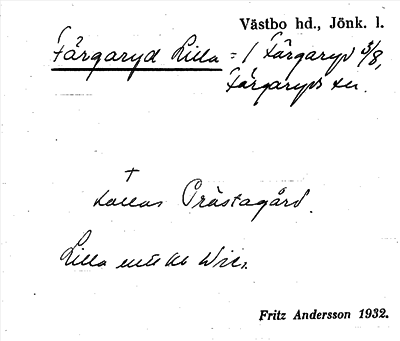 Västbo hd., Jönk. l.
Färgaryd Lilla = 1 Färgaryd 3/8,
Färgaryds sn.
†
kallas Prästagård.
Lilla enl Wik.
Fritz Andersson 1932.